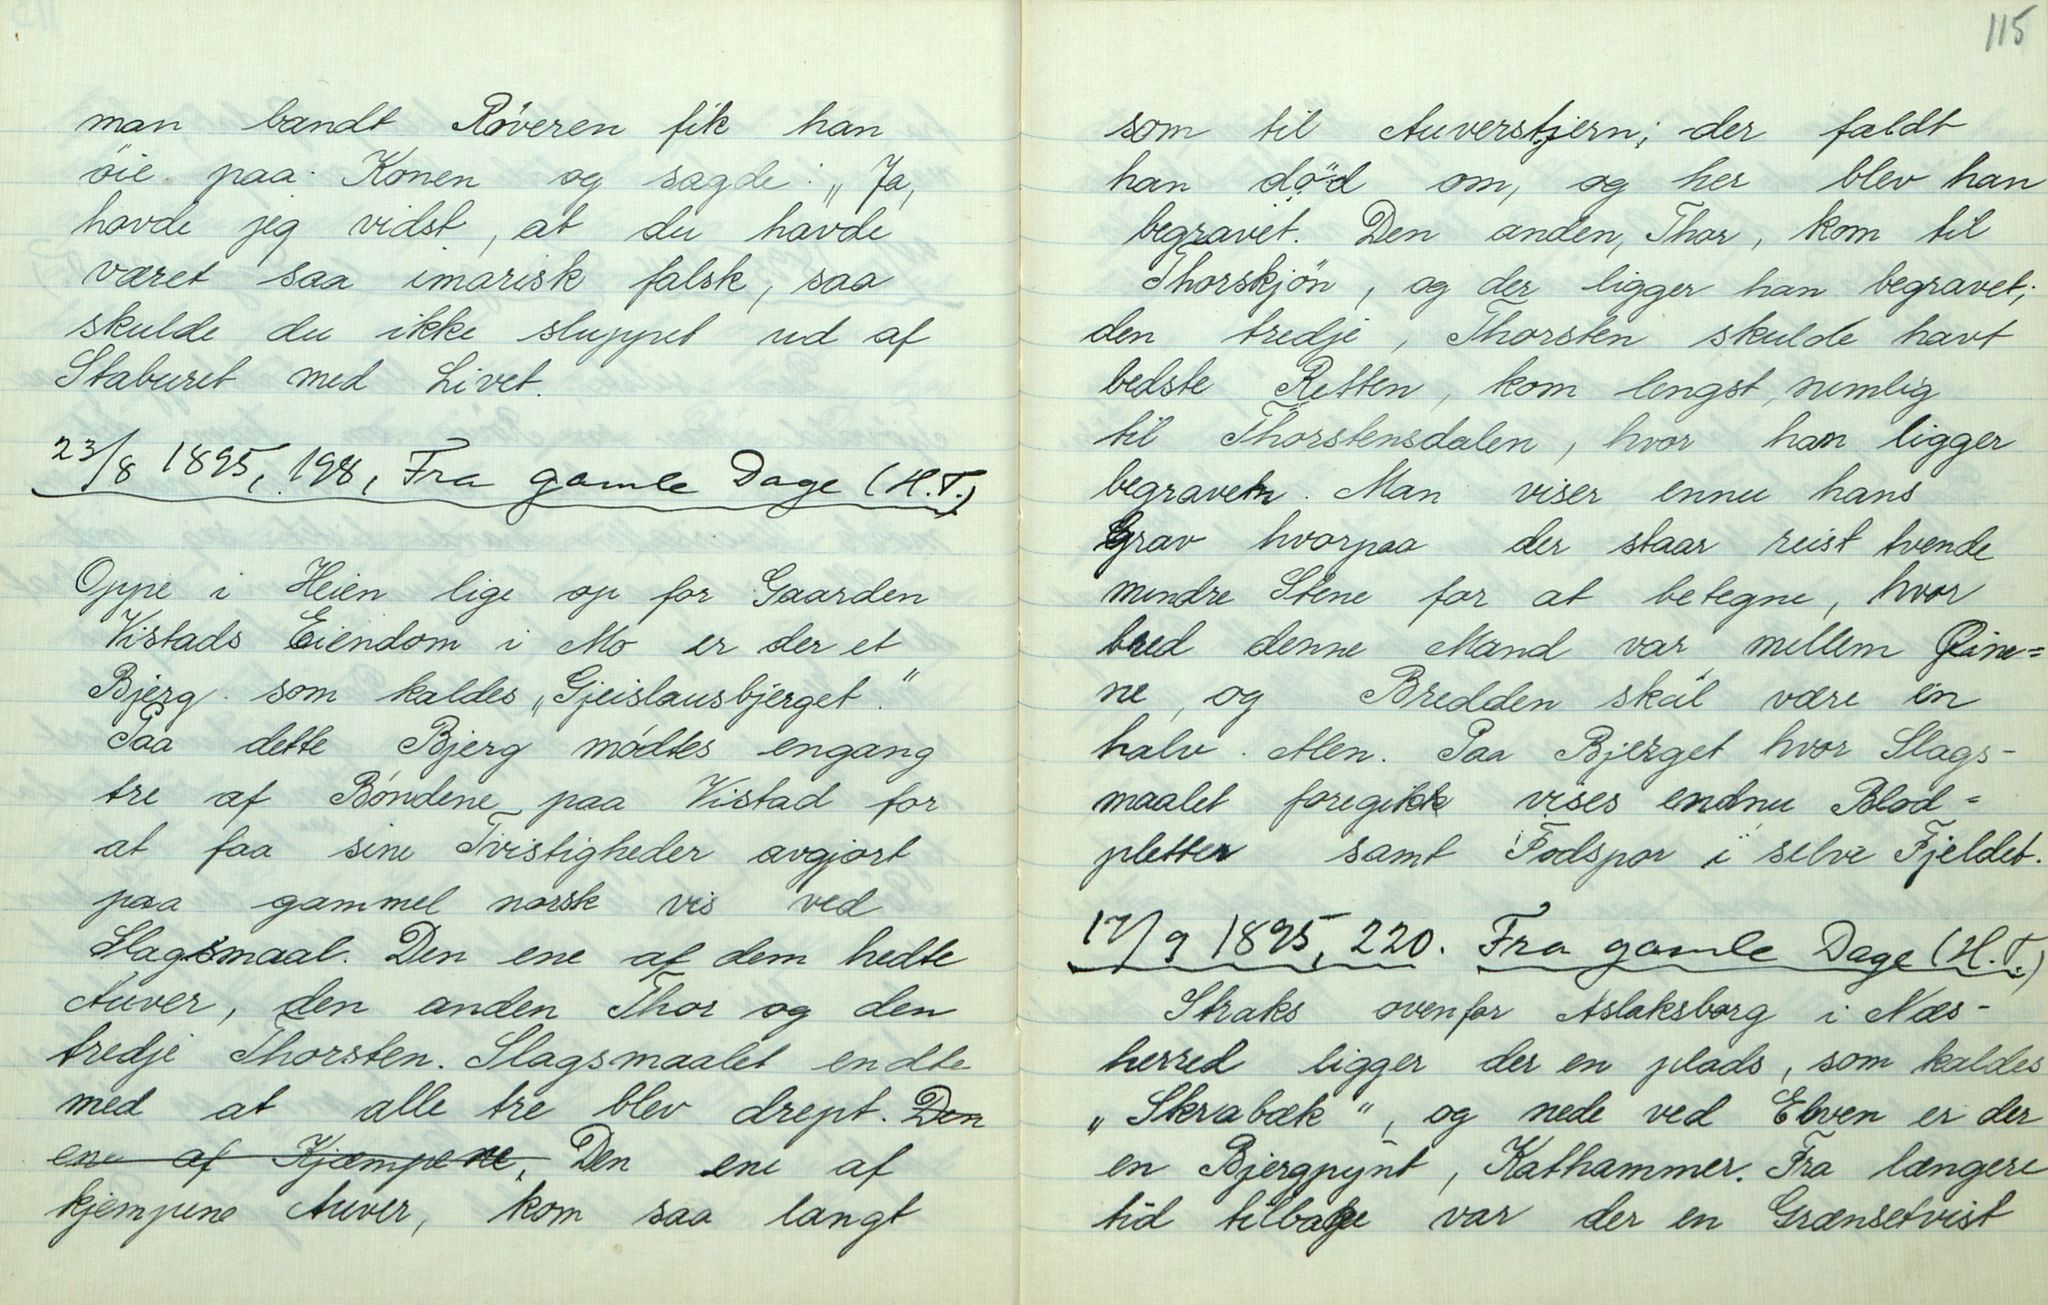 man bandt Røveren fik han
øie paa Konen og sagde: „Ja,
havde jeg vidst, at du havde
været saa imarisk falsk, saa
skulde du ikke sluppet ud af
Staburet med Livet.
23/8 1895, 198, Fra gamle Dage (H.T.)
Oppe i Heien lige op for Gaarden
Vistads Eiendom i Mo er der et
Bjerg som kaldes „Gjeislausbjerget."
Paa dette Bjerg mødtes engang
tre af Bøndene paa Vistad for
at faa sine Tvistigheder avgjort
paa gammel norsk vis ved
Slagsmaal. Den ene af dem hedte
Auver, den anden Thor og den
tredje Thorsten. Slagsmaalet endte
med at alle tre blev drept. Den
ene af Kjæmpene, Den ene af
kjempene Auver, kom saa langt
115
som til Auverstjern; der faldt
han død om, og her blev han
begravet. Den anden, Thor, kom til
Thorskjøn, og der ligger han begravet;
den tredje, Thorsten skulde havt
bedste Retten, kom lengst, nemlig
til Thorstensdalen, hvor han ligger
begraven. Man viser ennu hans
Grav hvorpaa der staar reist tvende
mindre Stene for at betegne, hvor
bred denne Mand var mellem Øine=
ne, og Bredden skal være en
halv Alen. Paa Bjerget hvor Slags-
maalet foregikk vises endnu Blod=
pletter samt Fodspor i selve Fjeldet.
17/9 1895, 220. Fra gamle Dage (H.T.)
Straks ovenfor Aslaksborg i Næs-
herred ligger der en plads, som kaldes
„Skrabæk", og nede ved Elven er der
en Bjergpynt, Kathammer. Fra længere
tid tilbage var der en Grænsetvist